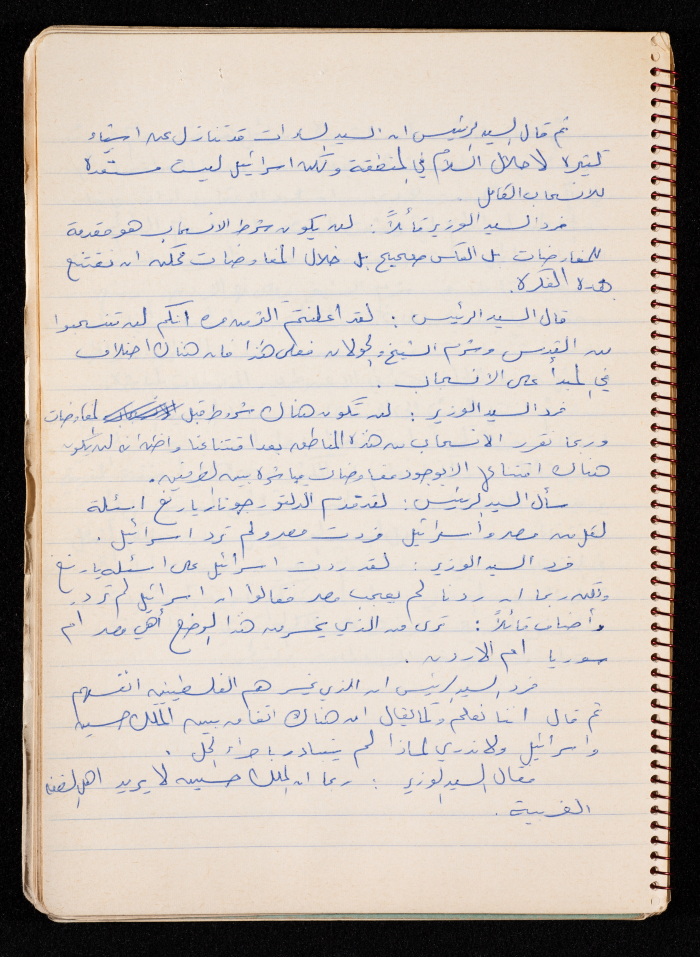 ثم قال السيد الرئيس ان السيد السادات قد تنازل عن اشياء
كثيرة لاحلال السلام في المنطقة ولكن اسرائيل ليست مستعدة
للانسحاب الكامل .
فرد السيد الوزير قائلاً : لن يكون شرط الانسحاب هو مقدمة
للمفاوضات بل العكس صحيح بل خلال المفاوضات ممكن ان نقتنع
بهذه الفكرة .
قال السيد الرئيس : لقد اعلنتم اكثر من مرة انكم لن تنسحبوا
من القدس وشرم الشيخ والجولان فعلى هذا فان هناك اختلاف
في المبدأ على الانسحاب .
فرد السيد الوزير : لن تكون هناك شروط قبل المفاوضات
وربما نقرر الانسحاب من هذه المناطق بعد اقتناعنا واضاف انه لن يكون
هناك اقتناع الا بوجود مفاوضات مباشرة بين الطرفين .
سأل السيد الرئيس : لقد قدم الدكتور جونار يارنغ اسئلة
لكل من مصر وأسرائيل فردت مصر ولم ترد اسرائيل .
فرد السيد الوزير : لقد ردت اسرائيل على اسئلة يارنغ
ولكن ربما ان ردنا لم يعجب مصر فقالوا ان اسرائيل لم ترد
وأضاف قائلاً : ترى من الذي يخسر من هذا الوضع أهي مصر ام
سوريا ام الاردن .
فرد السيد الرئيس ان الذي يخسر هم الفلسطينين انفسهم
ثم قال اننا نعلم وكما يقال ان هناك اتفاق بين الملك حسين
واسرائيل ولا ندري لماذا لم يتبادر باجراء الحل .
فقال السيد الوزير : ربما ان الملك حسين لا يريد اهل الضفة
الغربية .